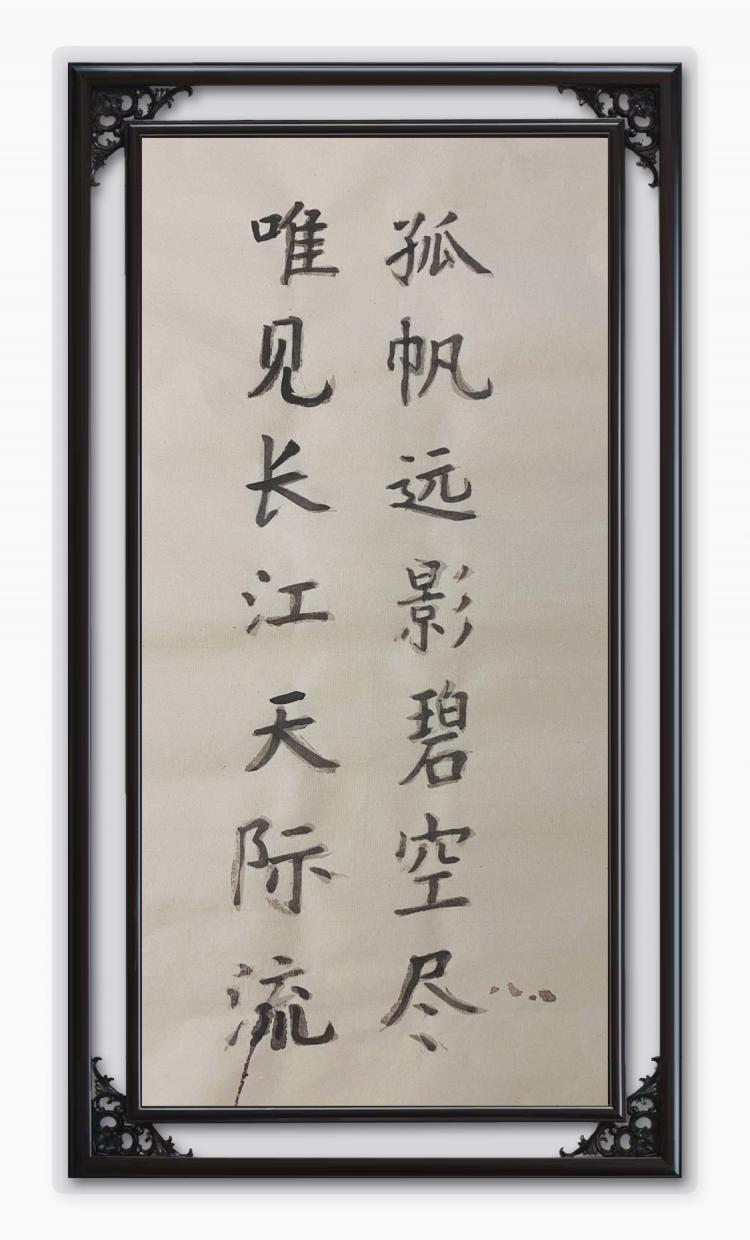 孤帆远影碧空尽
唯见长江天际流